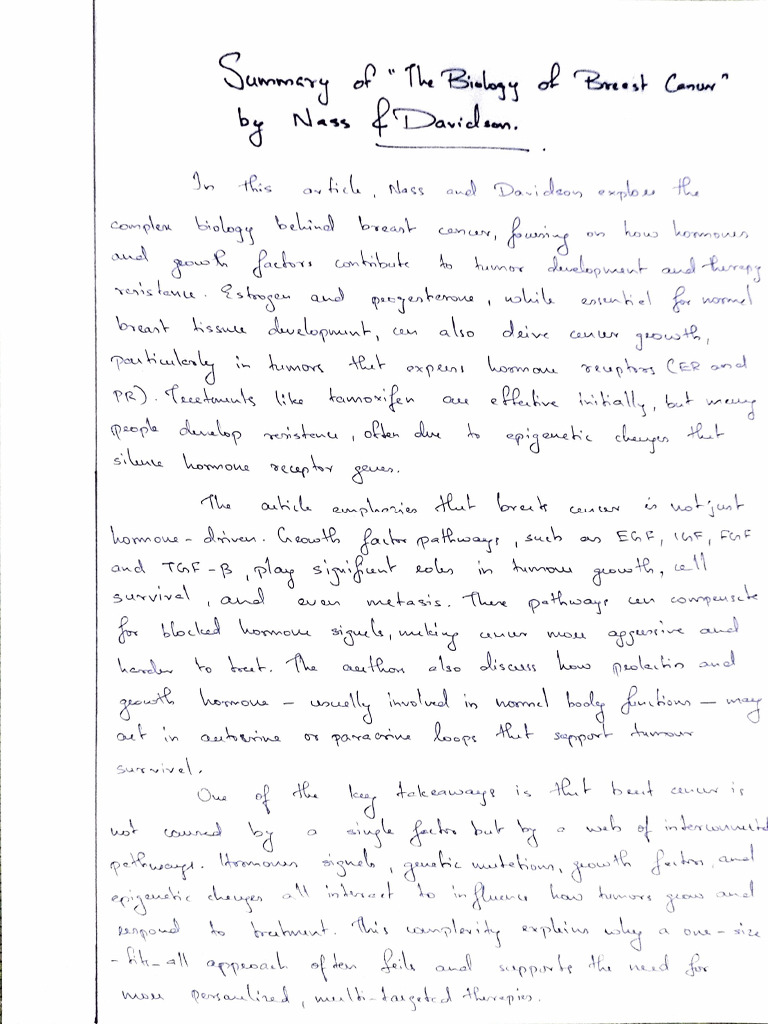 Summary of "The Biology of Breast Cancer"
by Nass & Davidson.
In this article, Nass and Davidson explore the
complex biology behind breast cancer, focusing on how hormones
and growth factors contribute to tumor development and therapy
resistance. Estrogen and progesterone, while essential for normal
breast tissue development, can also drive cancer growth,
particularly in tumors that express hormone receptors (ER and
PR). Treatments like tamoxifen are effective initially, but many
people develop resistance, often due to epigenetic changes that
silence hormone receptor genes.
The article emphasizes that breast cancer is not just
hormone-driven. Growth factor pathways, such as EGF, IGF, FGF
and TGF-β, play significant roles in tumour growth, cell
survival, and even metasis. These pathways can compensate
for blocked hormone signals, making cancer more aggressive and
harder to treat. The author also discuss how prolactin and
growth hormone - usually involved in normal body functions - may
act in autocrine or paracrine loops that support tumour
survival.
One of the key takeaways is that breast cancer is
not caused by a single factor but by a web of interconnected
pathways. Hormones signals, genetic mutations, growth factors, and
epigenetic changes all interact to influence how tumors grow and
respond to treatment. This complexity explains why a one-size
-fits-all approach often fails and supports the need for
more personalized, multi-targeted therapies.